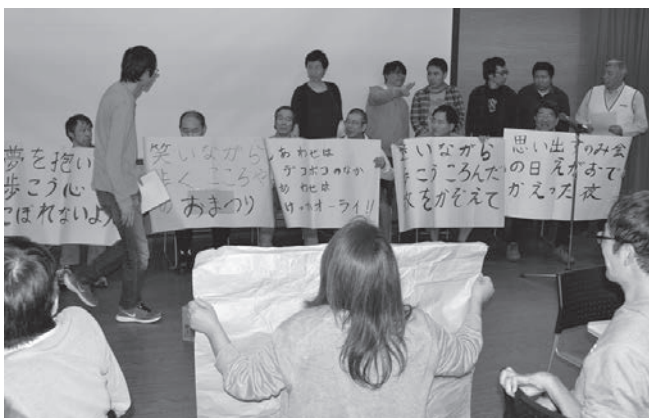 夢を抱い
歩こう心
こぼれないよ
笑いながら
歩く こころや
おまつり
しあわせは
デコボコのなか
しあわせは
けっかオーライ!!
いながら
こうころんだ
をかぞえて
思い出すのみ会
の日えがおで
かえった夜